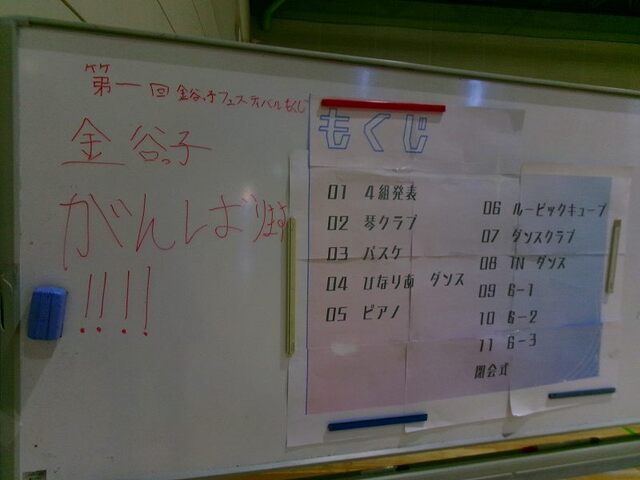 第一回 金谷っ子フェスティバルもくじ
金谷っ子
がんばります
!!!!
もくじ
01 4組発表
02 琴クラブ
03 バスケ
04 ひなりあ ダンス
05 ピアノ
06 ルービックキューブ
07 ダンスクラブ
08 TN ダンス
09 6-1
10 6-2
11 6-3
閉会式